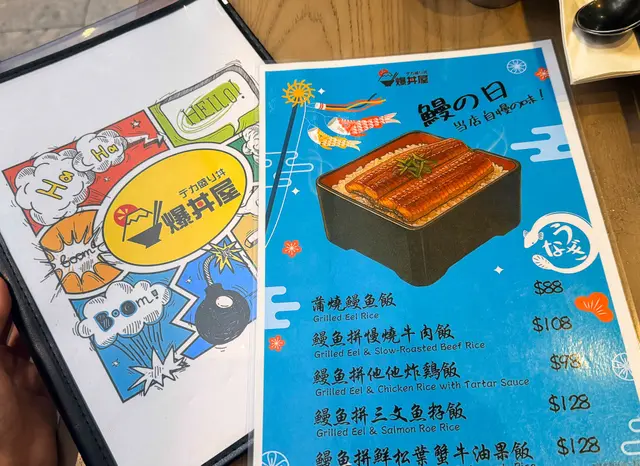 HELLO!
Ha Ha
デカ盛り丼
爆丼屋
Boom!
BOOM!
デカ盛り丼
爆丼屋
鰻の日
当店自慢の味！
うなぎ
蒲燒鰻魚飯 $88
Grilled Eel Rice
鰻魚拼慢燒牛肉飯 $108
Grilled Eel & Slow-Roasted Beef Rice
鰻魚拼他他炸鶏飯 $98
Grilled Eel & Chicken Rice with Tartar Sauce
鰻魚拼三文魚籽飯 $128
Grilled Eel & Salmon Roe Rice
鰻魚拼鮮松葉蟹牛油果飯 $128